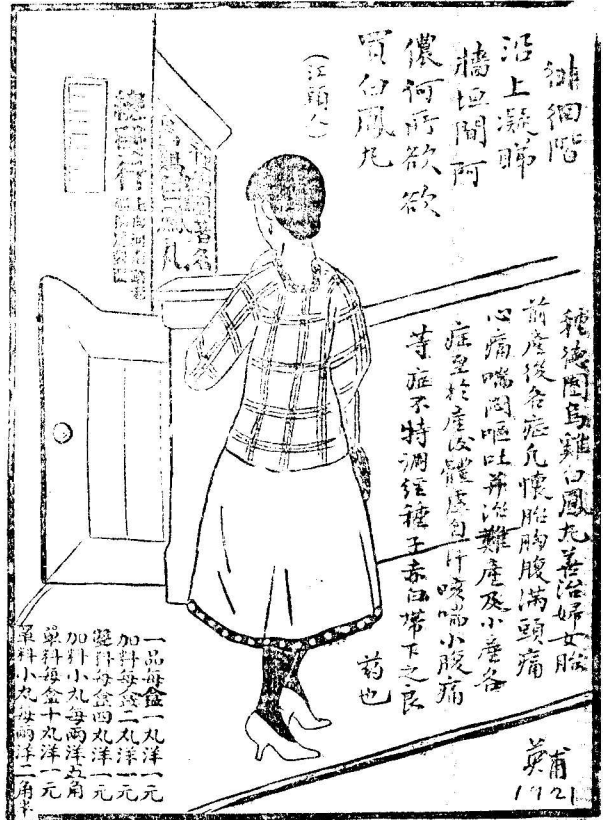 徘徊階
沿上凝睇
牆垣間阿
儂何所欲欲
買白鳳丸
(江頭人)
種德園著名
烏鷄白鳳丸
總發行
種德園烏雞白鳳丸善治婦女胎
前產後各症凡懷胎胸腹滿頭痛
心痛喘悶嘔吐并治難產及小產各
症至於產後體虛自汗咳喘小腹痛
等症不特調經種子赤白帶下之良
葯也
英甫
1921
一品每盒一丸洋一元
加料每盒二丸洋一元
雙料每盒四丸洋一元
加料小丸每兩洋五角
單料每盒十丸洋一元
單料小丸每兩洋二角半